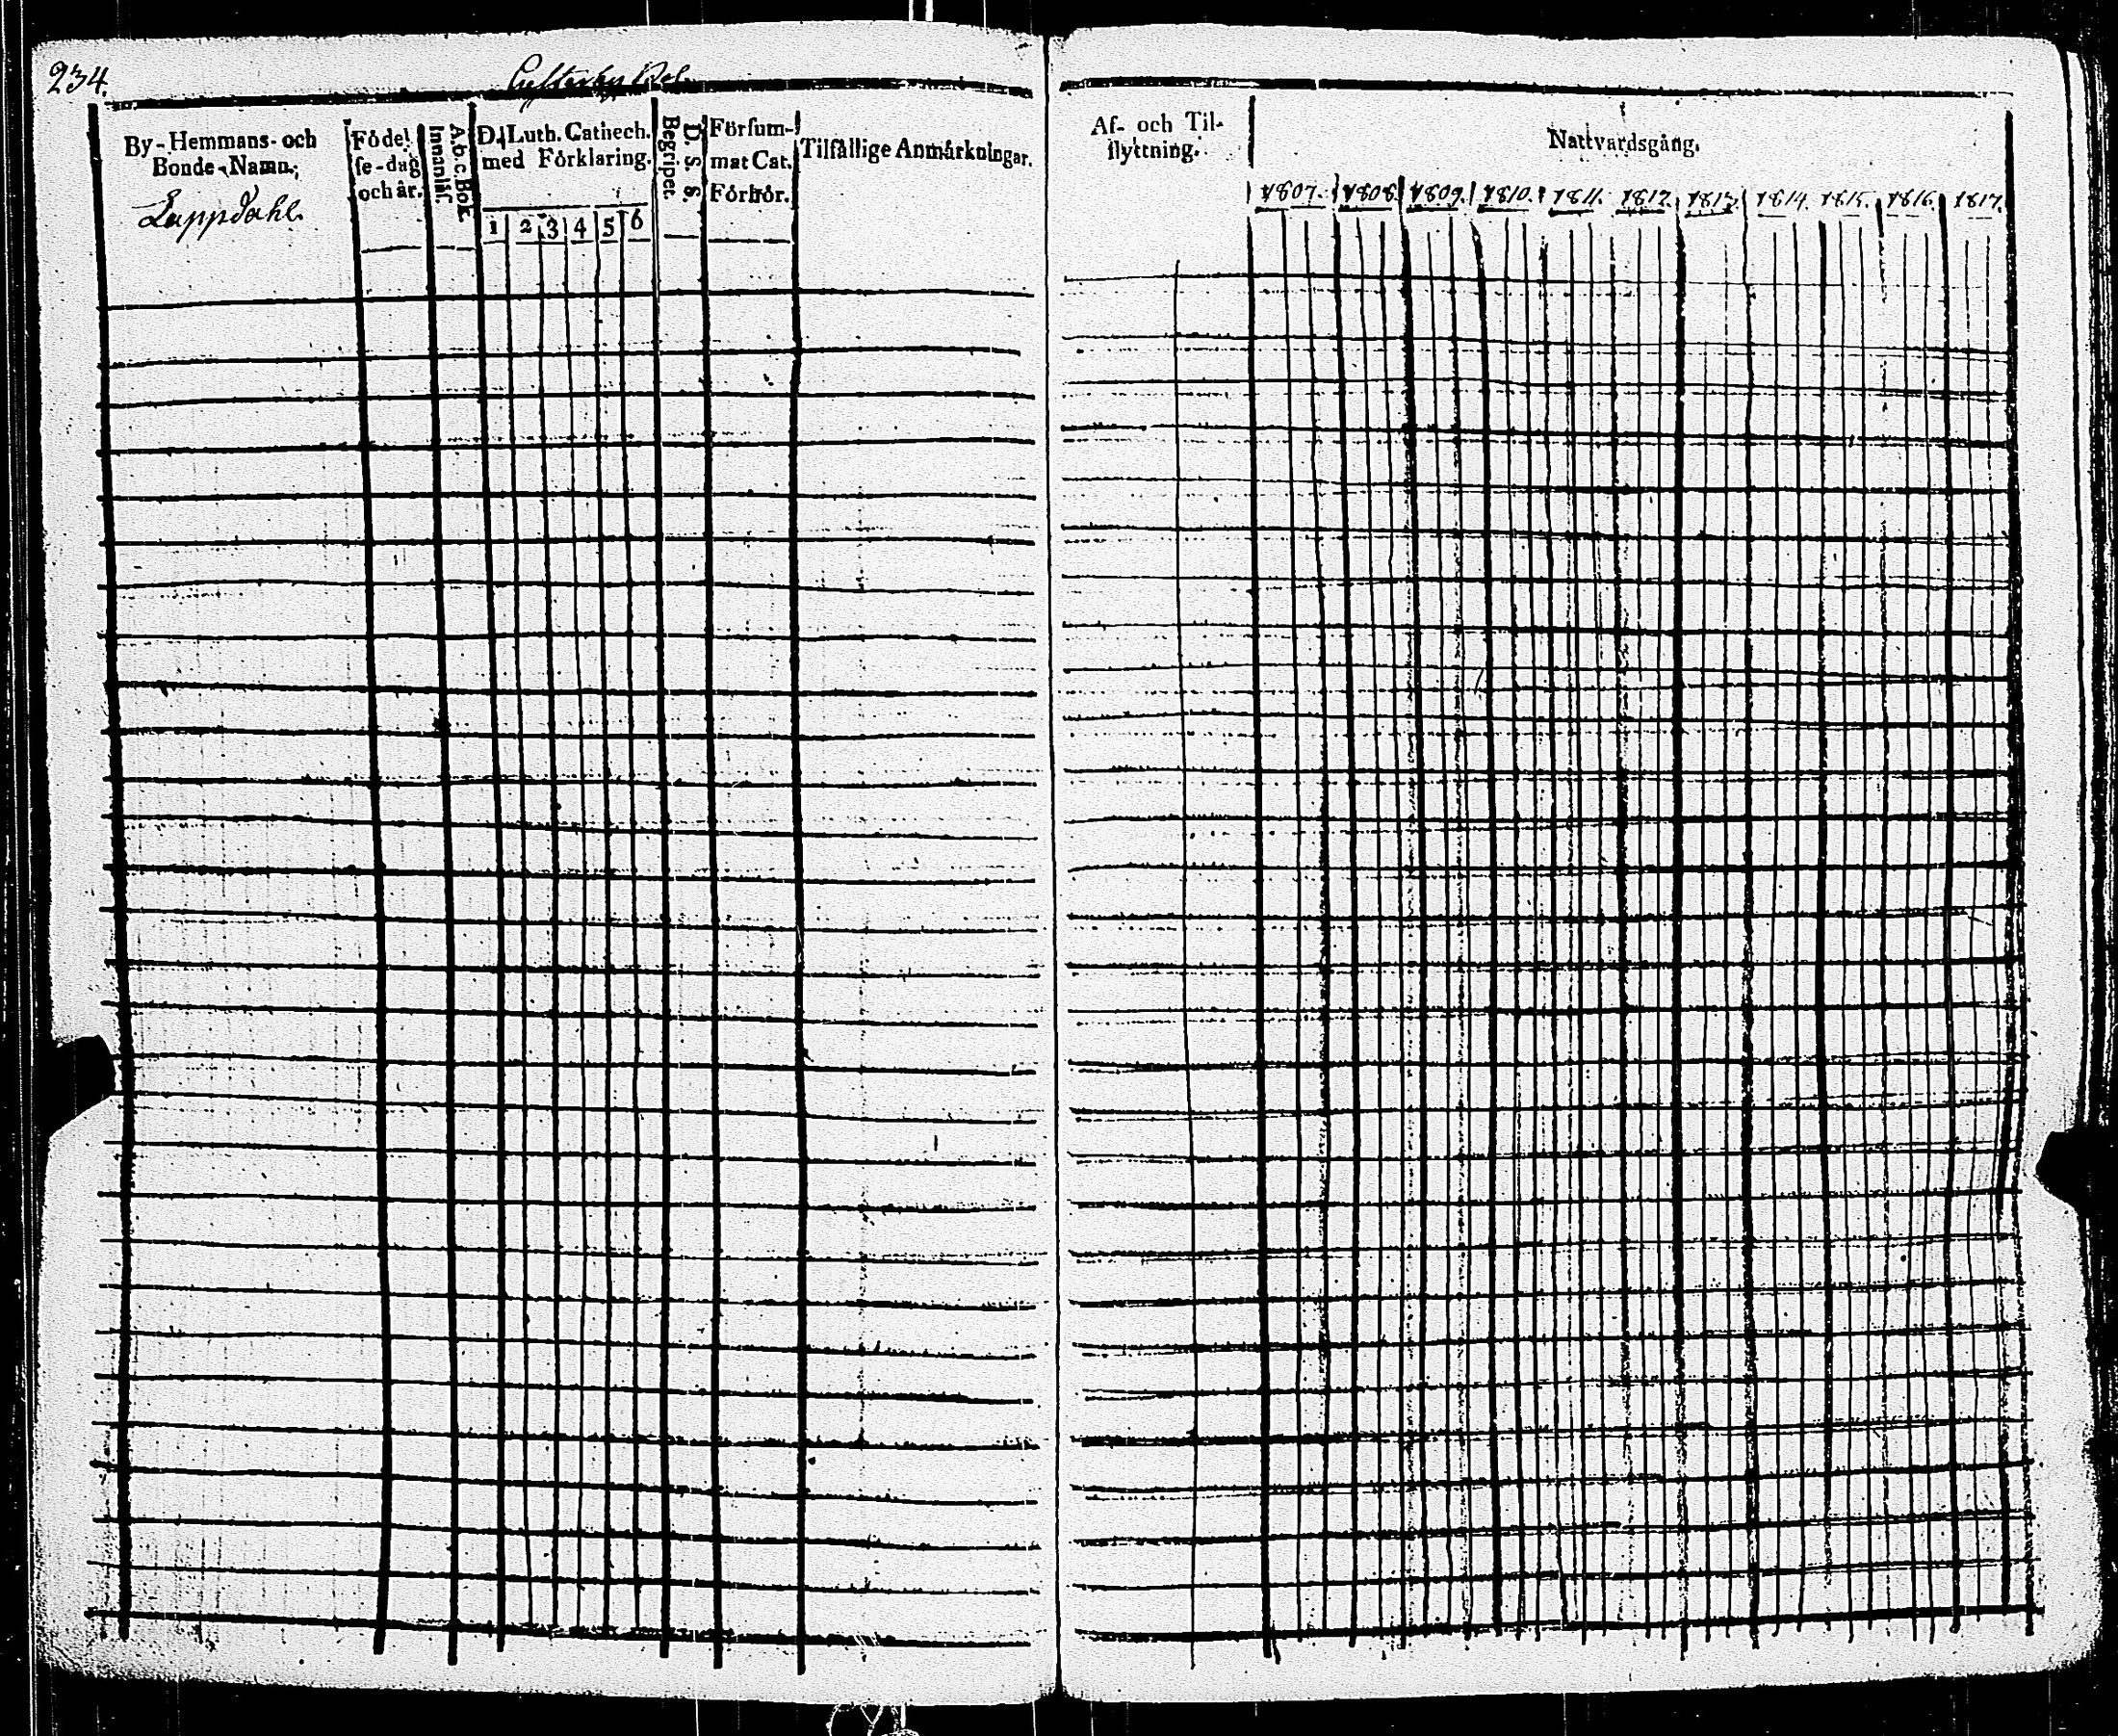 234.
By-Hemmans- och
Bonde-Namn.
Lappdahl.
Födel
se-dag
och år.
A.b.c.Bok.
Innanläs.
D. Luth. Cathech.
med Förklaring.
1 2 3 4 5 6
D. S. S.
Begripet.
Försum-
mat Cat.
Förhör.
Tilfällige Anmärkningar.
Af- och Til-
flyttning.
Nattvardsgång.
1807. 1808. 1809. 1810. 1811. 1812. 1813. 1814. 1815. 1816. 1817.